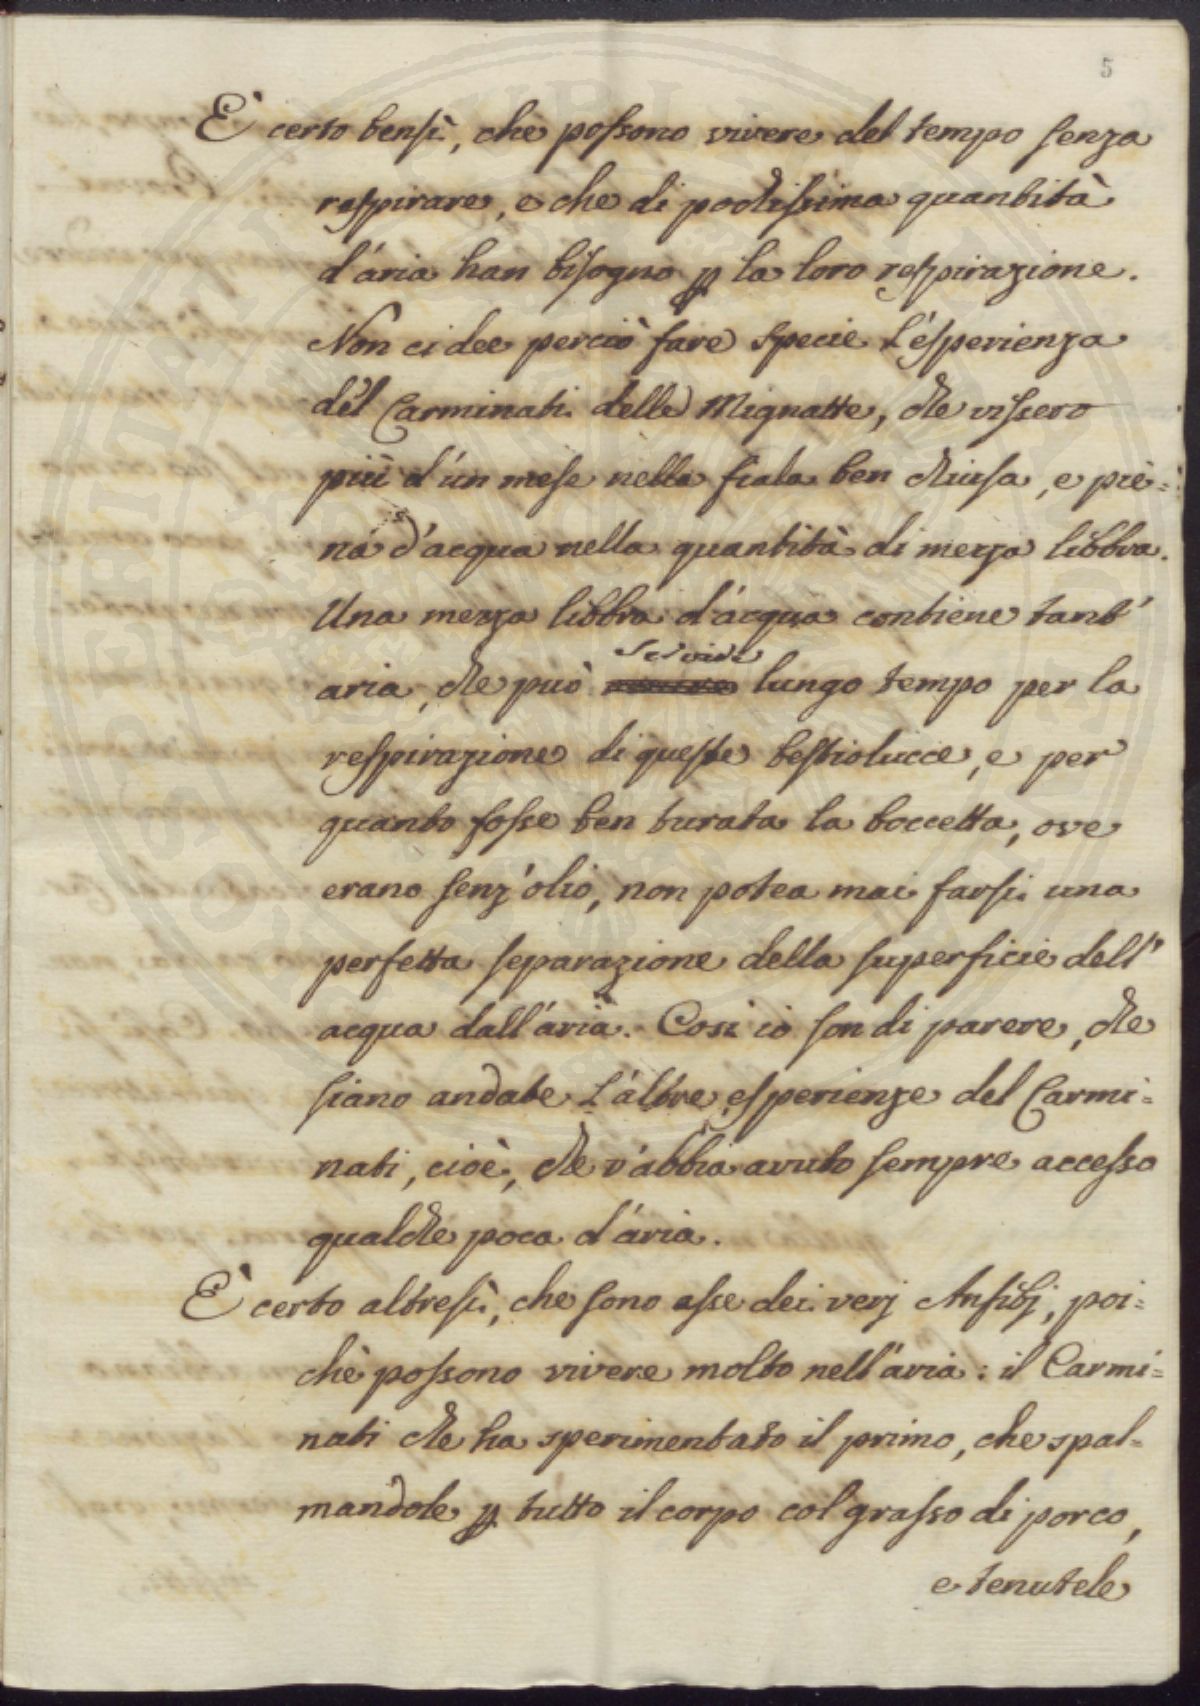 5
È certo bensì, che possono vivere del tempo senza
respirare, e che di pochissima quantità
d'aria han bisogno p la loro respirazione.
Non ci dee perciò fare specie l'esperienza
del Carminati delle Mignatte, che vissero
più d'un mese nella fiala ben chiusa, e pie=
na d'acqua nella quantità di mezza libbra.
Una mezza libbra d'acqua contiene tant'
aria, che può servire lungo tempo per la
respirazione di queste bestiolucce, e per
quanto fosse ben turata la boccetta, ove
erano senz'olio, non potea mai farsi una
perfetta separazione della superficie dell'
acqua dall'aria. Così io son di parere, che
siano andate l'altre esperienze del Carmi=
nati, cioè, che v'abbia avuto sempre accesso
qualche poca d'aria.
È certo altresì, che sono asse dei verj Anfibj, poi=
chè possono vivere molto nell'aria: il Carmi=
nati che ha sperimentato il primo, che spal=
mandole p tutto il corpo col grasso di porco,
e tenutele